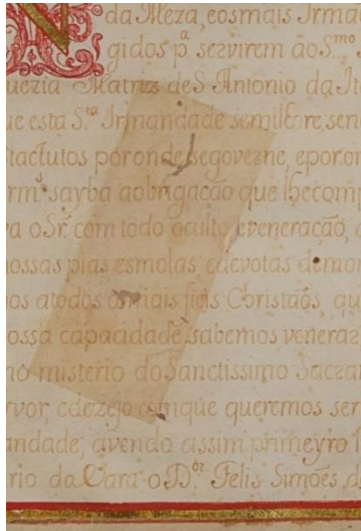 da Meza, eosmais Irma
gidos pª servirem aoSmo
guezia Matriz deS Antonio da It
ue esta Sta Irmandade semilbre, sen
stactutos poronde segoverne, eporon
rme sayba aobrigacção que lhecomp
va oSr com todo oculto eveneração, c
nossas pias esmolas, edevotas demon
os atodos osmais fieis Christaõs, qu
ossa capacidade sabemos venerar
no misterio doSanctissimo Sacra
rvor, edezejo comque queremos ser
andade, avendo assim primeyro l
rio da Vara o Dor Felis Simões d